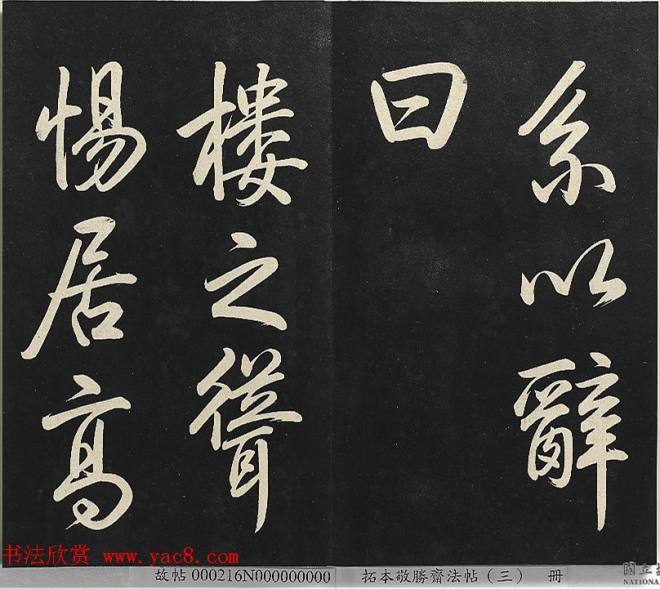 系以辭
曰
樓之聳
惕居高
书法欣赏 www.yac8.com
故帖 000216N000000000
拓本敬勝齋法帖（三） 冊
國立故
NATIONAL